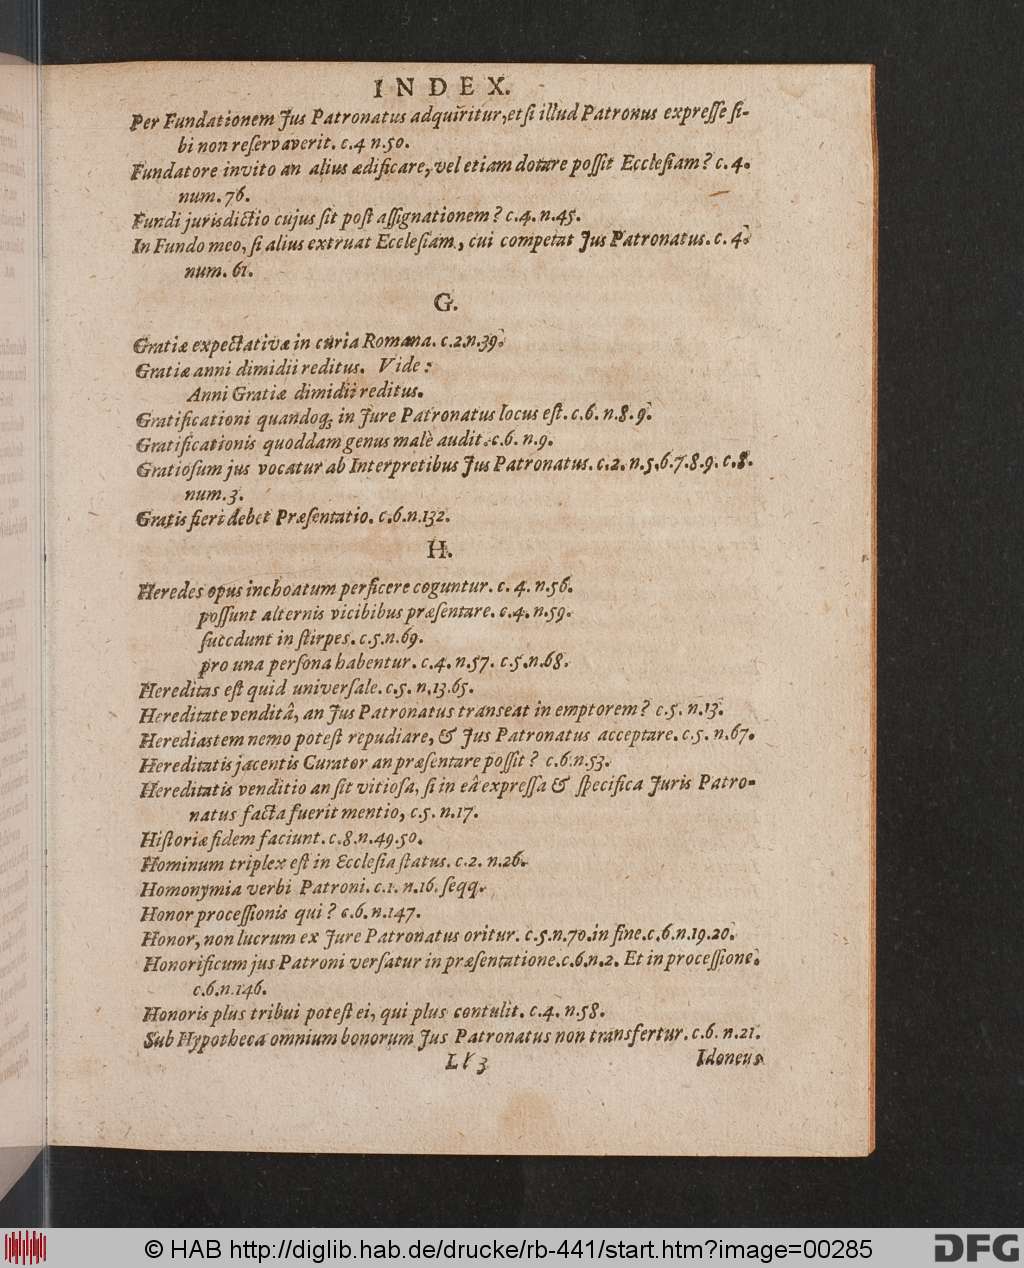 INDEX.
Per Fundationem Jus Patronatus adquiritur, etsi illud Patronus expresse si-
bi non reservaverit. c.4 n.50.
Fundatore invito an alius ædificare, vel etiam dotare possit Ecclesiam? c. 4.
num. 76.
Fundi jurisdictio cujus sit post assignationem? c.4. n.45.
In Fundo meo, si alius extruat Ecclesiam, cui competat Jus Patronatus. c. 4.
num. 61.
G.
Gratiæ expectativæ in curia Romana. c.2.n.39.
Gratiæ anni dimidii reditus. Vide:
Anni Gratiæ dimidii reditus.
Gratificationi quandoq; in Jure Patronatus locus est. c.6. n.8. 9.
Gratificationis quoddam genus malè audit. c.6. n.9.
Gratiosum jus vocatur ab Interpretibus Jus Patronatus. c.2. n.5.6.7.8.9. c.8.
num. 3.
Gratis fieri debet Præsentatio. c.6.n.132.
H.
Heredes opus inchoatum perficere coguntur. c. 4. n.56.
possunt alternis vicibibus præsentare. c.4. n.59.
succdunt in stirpes. c.5.n.69.
pro una persona habentur. c.4. n.57. c.5.n.68.
Hereditas est quid universale. c.5. n.13.65.
Hereditate venditâ, an Jus Patronatus transeat in emptorem? c.5. n.13.
Herediastem nemo potest repudiare, & Jus Patronatus acceptare. c.5. n.67.
Hereditatis jacentis Curator an præsentare possit? c.6.n.53.
Hereditatis venditio an sit vitiosa, si in eâ expressa & specifica Juris Patro-
natus facta fuerit mentio, c.5. n.17.
Historiæ fidem faciunt. c.8.n.49.50.
Hominum triplex est in Ecclesia status. c.2. n.26.
Homonymia verbi Patroni. c.1. n.16. seqq.
Honor processionis qui? c.6.n.147.
Honor, non lucrum ex Jure Patronatus oritur. c.5.n.70. in fine. c.6.n.19.20.
Honorificum jus Patroni versatur in præsentatione. c.6.n.2. Et in processione.
c.6.n.146.
Honoris plus tribui potest ei, qui plus contulit. c.4. n.58.
Sub Hypotheca omnium bonorum Jus Patronatus non transfertur. c.6. n.21.
Ll 3 Idoneus
© HAB http://diglib.hab.de/drucke/rb-441/start.htm?image=00285 DFG